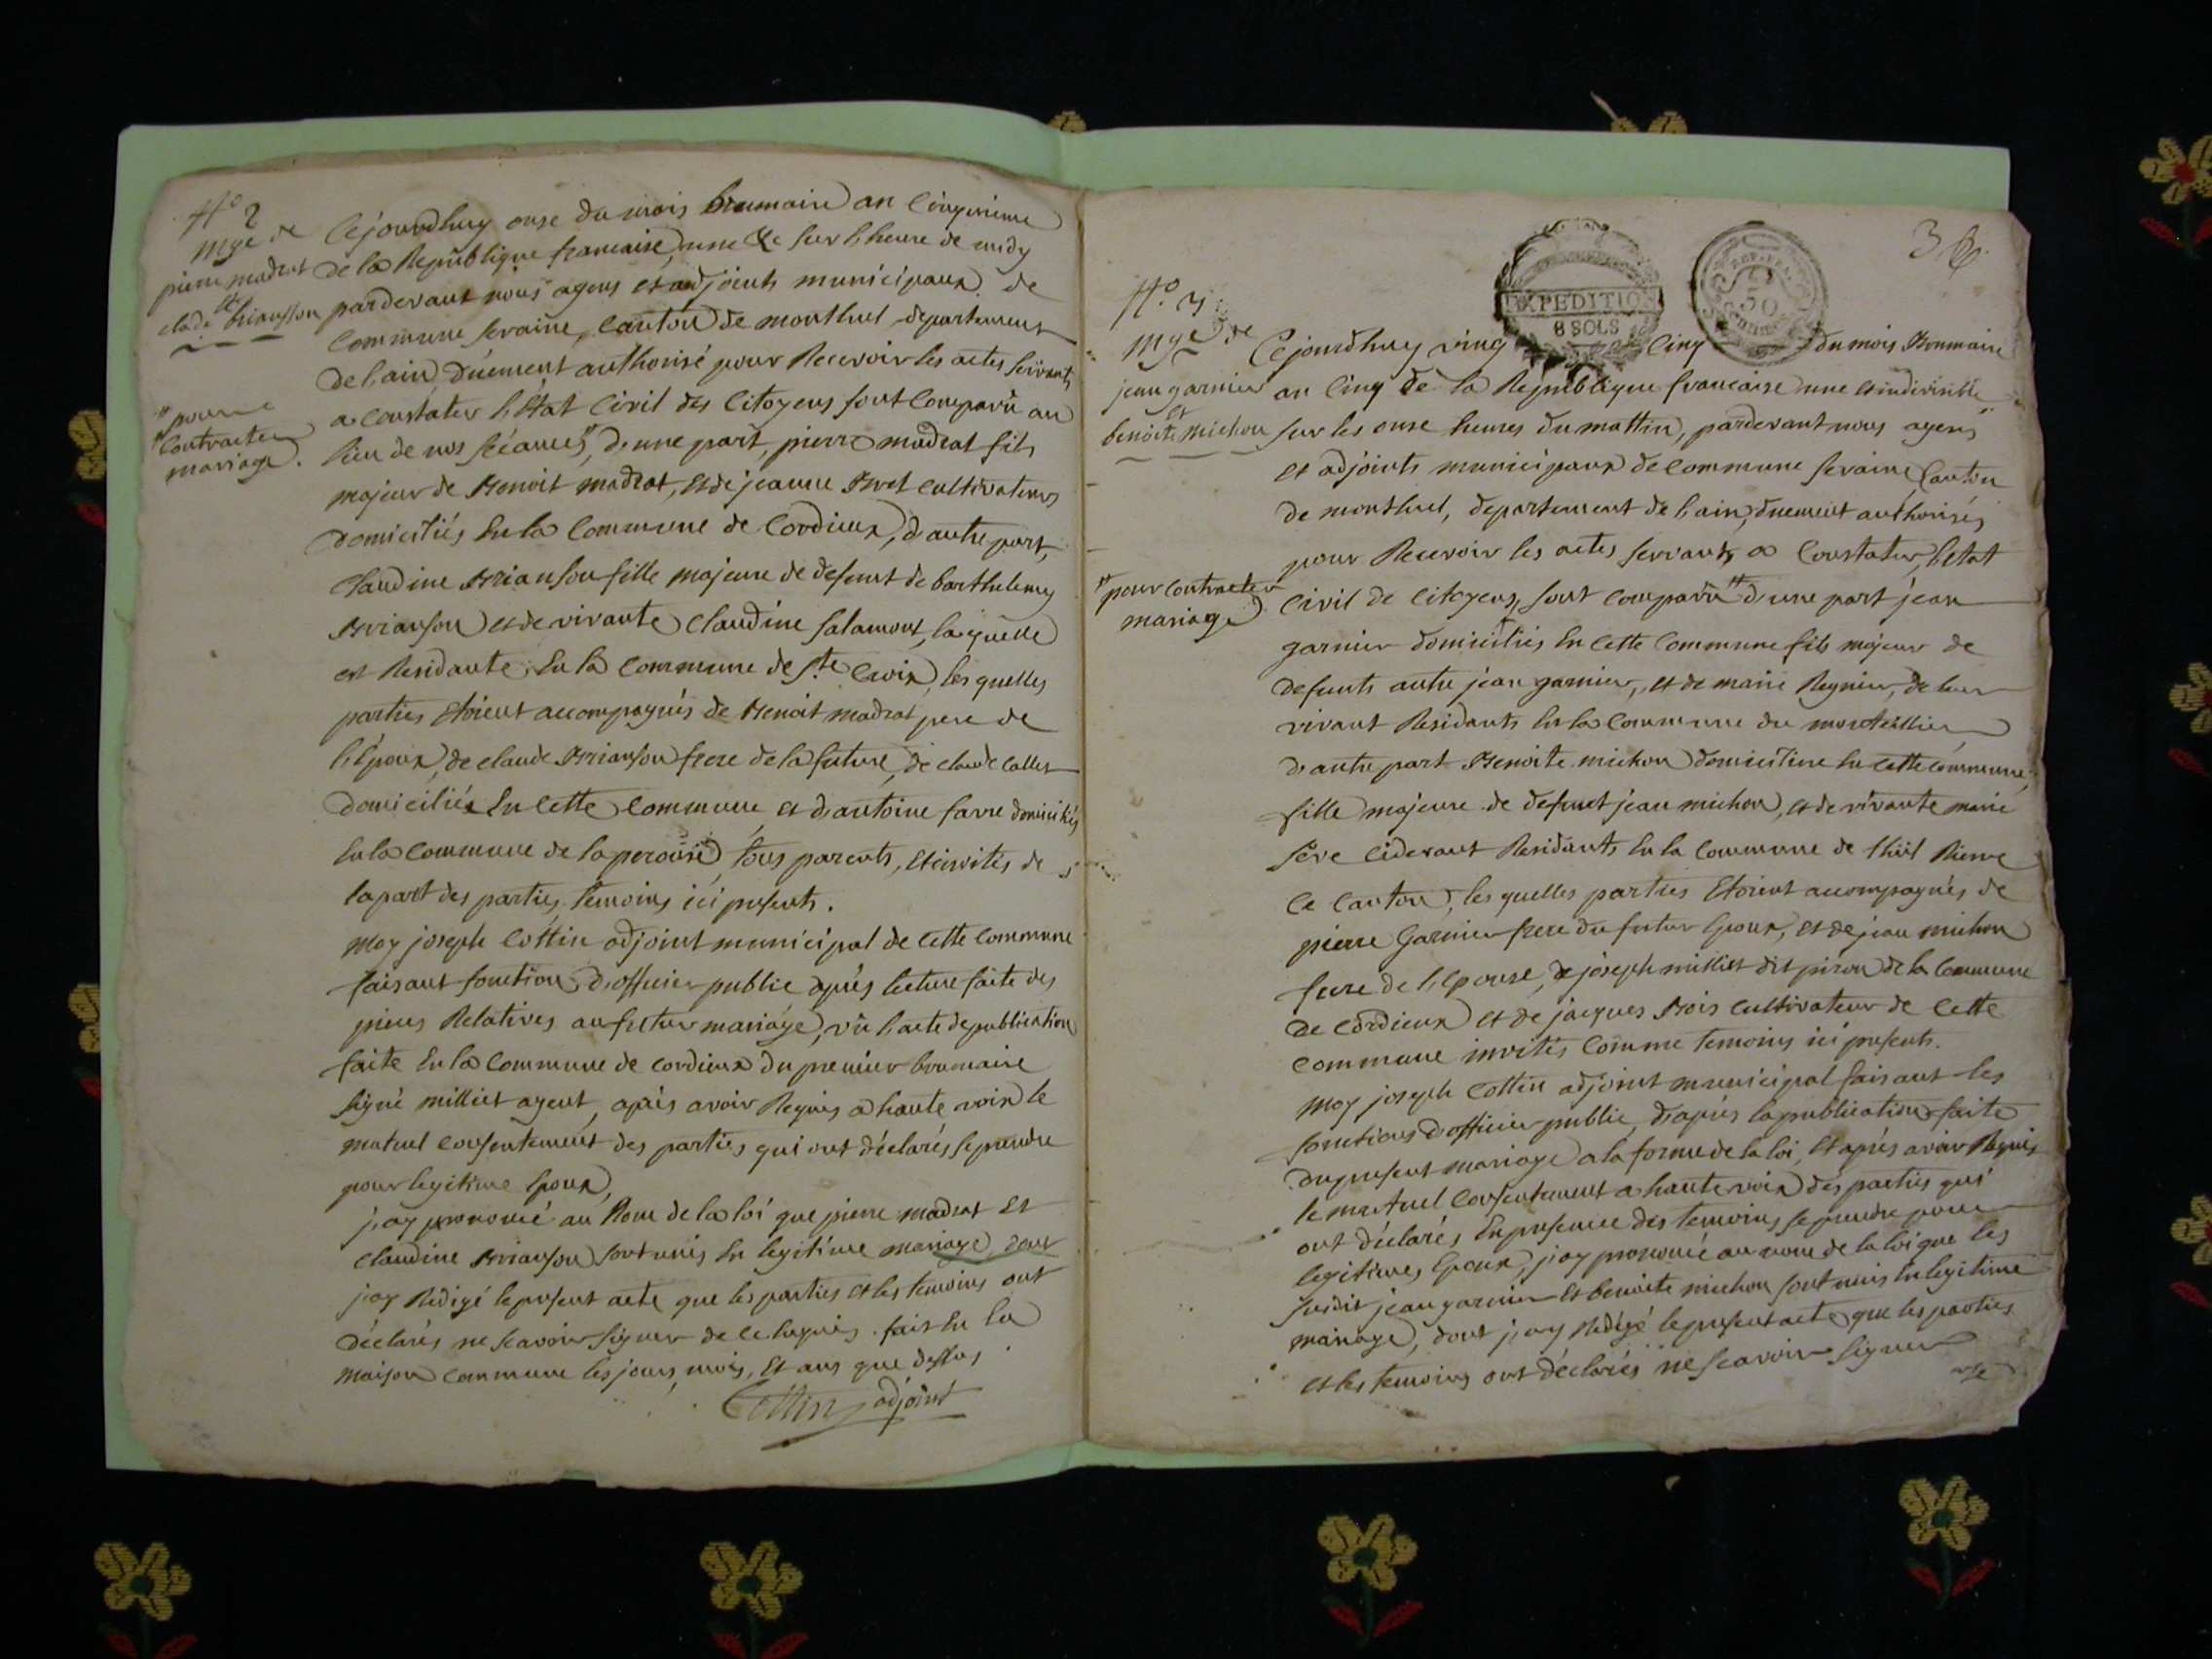 N° 2
mge de
pierre madrat
et
clade briansson
Cejourdhuy onse du mois brumaire an Cinquieme
de la Republique francaise, une &c sur l'heure de midy
pardevant nous agens et adjoints municipaux de
Commune servaine, Canton de montluel departement
de l'ain, düement authorisé pour Recevoir les actes servants
a constater l'Etat Civil des Citoyens sont Comparu au
lieu de nos séances", d'une part, pierre madrat fils
"pour
contracter
mariage.
majeur de Benoit madrat, et de jeanne Bret cultivateurs
domiciliés En la Commune de Cordieux, d'autre part,
Claudine Brianson fille majeure de defunt de barthelemy
Brianson et de vivante Claudine Salamont, laquelle
est Residante En la Commune de Ste Croix, les quelles
parties Etoient accompagnés de Benoit madrat pere de
l'Epoux, de claude Brianson frere de la future, de claude Collet
domiciliés En cette Commune, et d'antoine favre domicilié
En la Commune de la perouse, tous parents, et invités de
la part des parties temoins ici presents.
moy joseph Cottin adjoint municipal de Cette Commune
faisant fonctions d'officier public après lecture faite des
pieces Relatives au futur mariage, vû l'acte de publication
faite En la Commune de cordieux du premier brumaire
signé milliet agent, après avoir Requis a haute voix le
mutuel consentement des parties qui ont déclarés se prendre
pour legitime Epoux,
j'ay prononcé au Nom de la loi que pierre madrat Et
Claudine Brianson sont unis En legitime mariage, dont
j'ay Redigé le present acte que les parties et les temoins ont
déclarés ne scavoir signer de ce Enquis. fait En la
maison commune les jours, mois, Et ans que dessus
Cottin adjoint
3
EXPEDITION
8 SOLS
50
N° 3
mge de
jean garnier
et
benoite michon
Cejourdhuy ving cinq du mois Brumaire
an Cinq de la Republique francaise une et indivisible
sur les onse heures du mattin, pardevant nous agens
et adjoints municipaux de Commune servaine Canton
de montluel, departement de l'ain, duement authorisés
pour Recevoir les actes servants a Constater l'Etat
Civil de Citoyens, sont comparu" d'une part jean
"pour contracter
mariage
garnier domiciliés En cette Commune fils majeur de
defunts autre jean garnier, et de marie Regnier, de leur
vivant Residants En la Commune du montellier
d'autre part Benoite michon domiciliée En cette commune,
fille majeure de defunt jean michon, et de vivante marie
seve cidevant Residants En la Commune de thil Rieme
ce Canton, les quelles parties Etoient accompagnés de
pierre Garnier frere du futur Epoux, et de jean michon
frere de l'Epouse, de joseph milliet dit piron de la Commune
de Cordieux et de jacques Bois cultivateur de Cette
commune invités comme temoins ici presents.
moy joseph Cottin adjoint municipal faisant les
fonctions d'officier public, d'apres la publication faite
du present mariage a la forme de la loi, Et après avoir Requis
le mutuel Consentement a haute voix des parties qui
ont déclarés En presence des temoins se prendre pour
legitimes Epoux, j'ay prononcé au nom de la loi que les
susdit jean garnier et benoite michon sont unis En legitime
mariage, dont j'ay Redigé le present acte que les parties
et les temoins ont déclarés ne scavoir signer